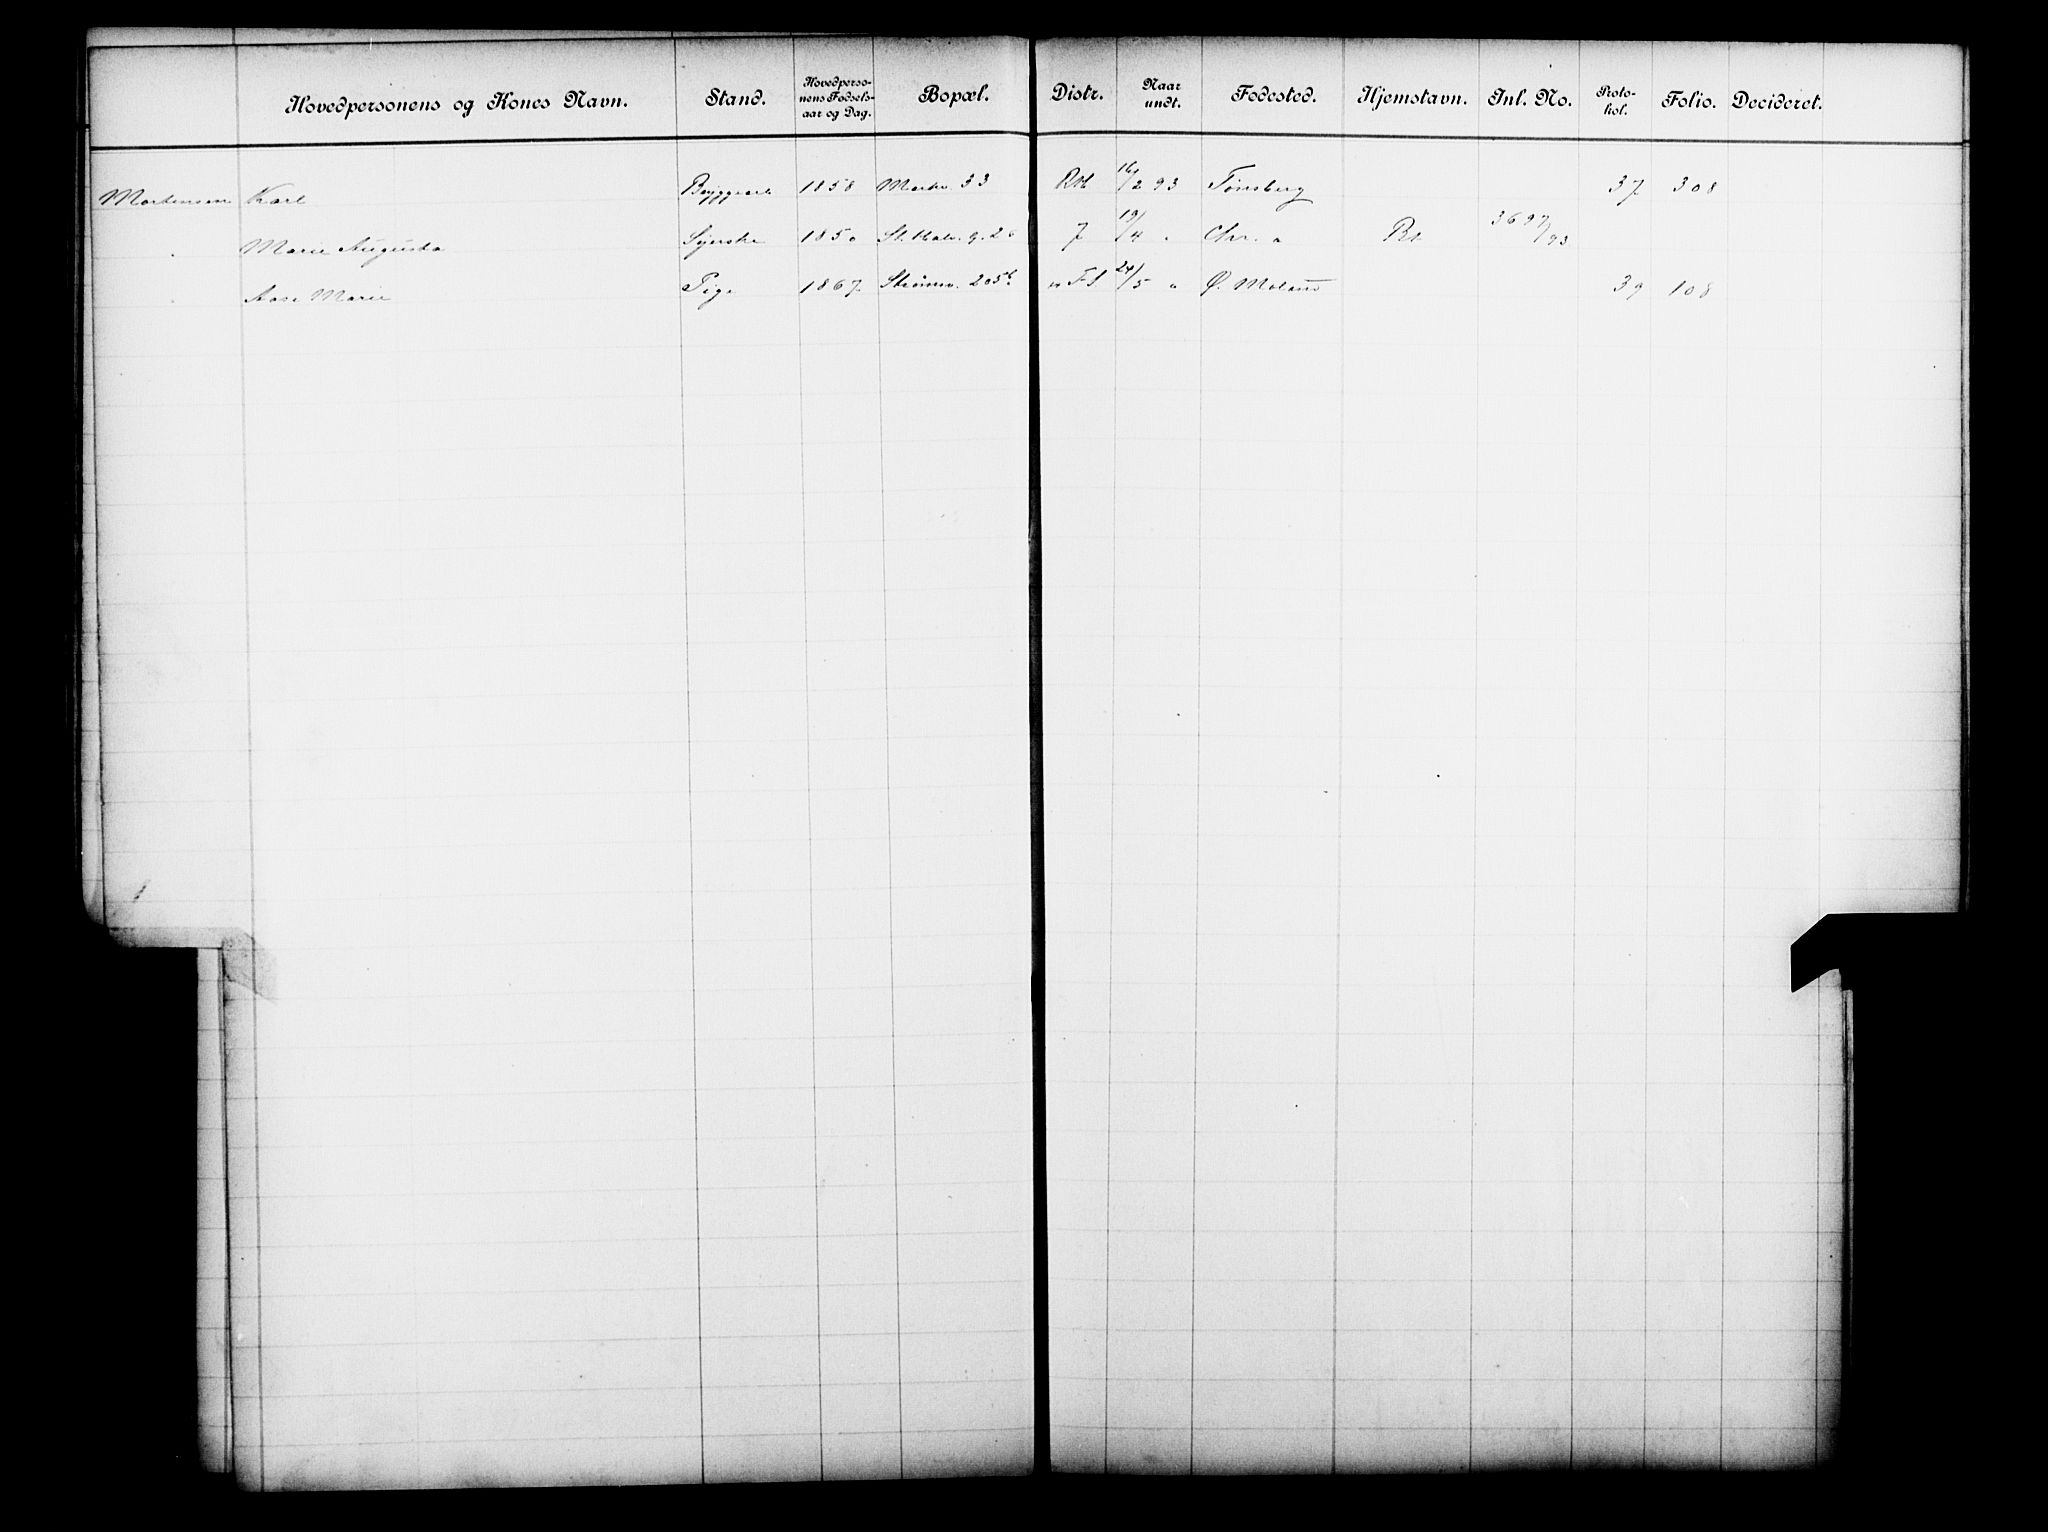 Hovedpersonens og Kones Navn. Stand. Hovedpersonens Fødselsaar og Dag. Bopæl. Distr. Naar undt. Fødested. Hjemstavn. Inl. No. Protokol. Folio. Decideret.
Mortensen Karl Byggearb 1858 Markv. 33 RH 16/2 93 Tønsberg 37 308
" Marie Augusta Syerske 1850 St. Halv. g. 28 J 19/4 " Chr. a Rt 3697/93
" Aase Marie Pige 1867 Strømsv. 205b FS 24/5 " Ø. Moland 39 108